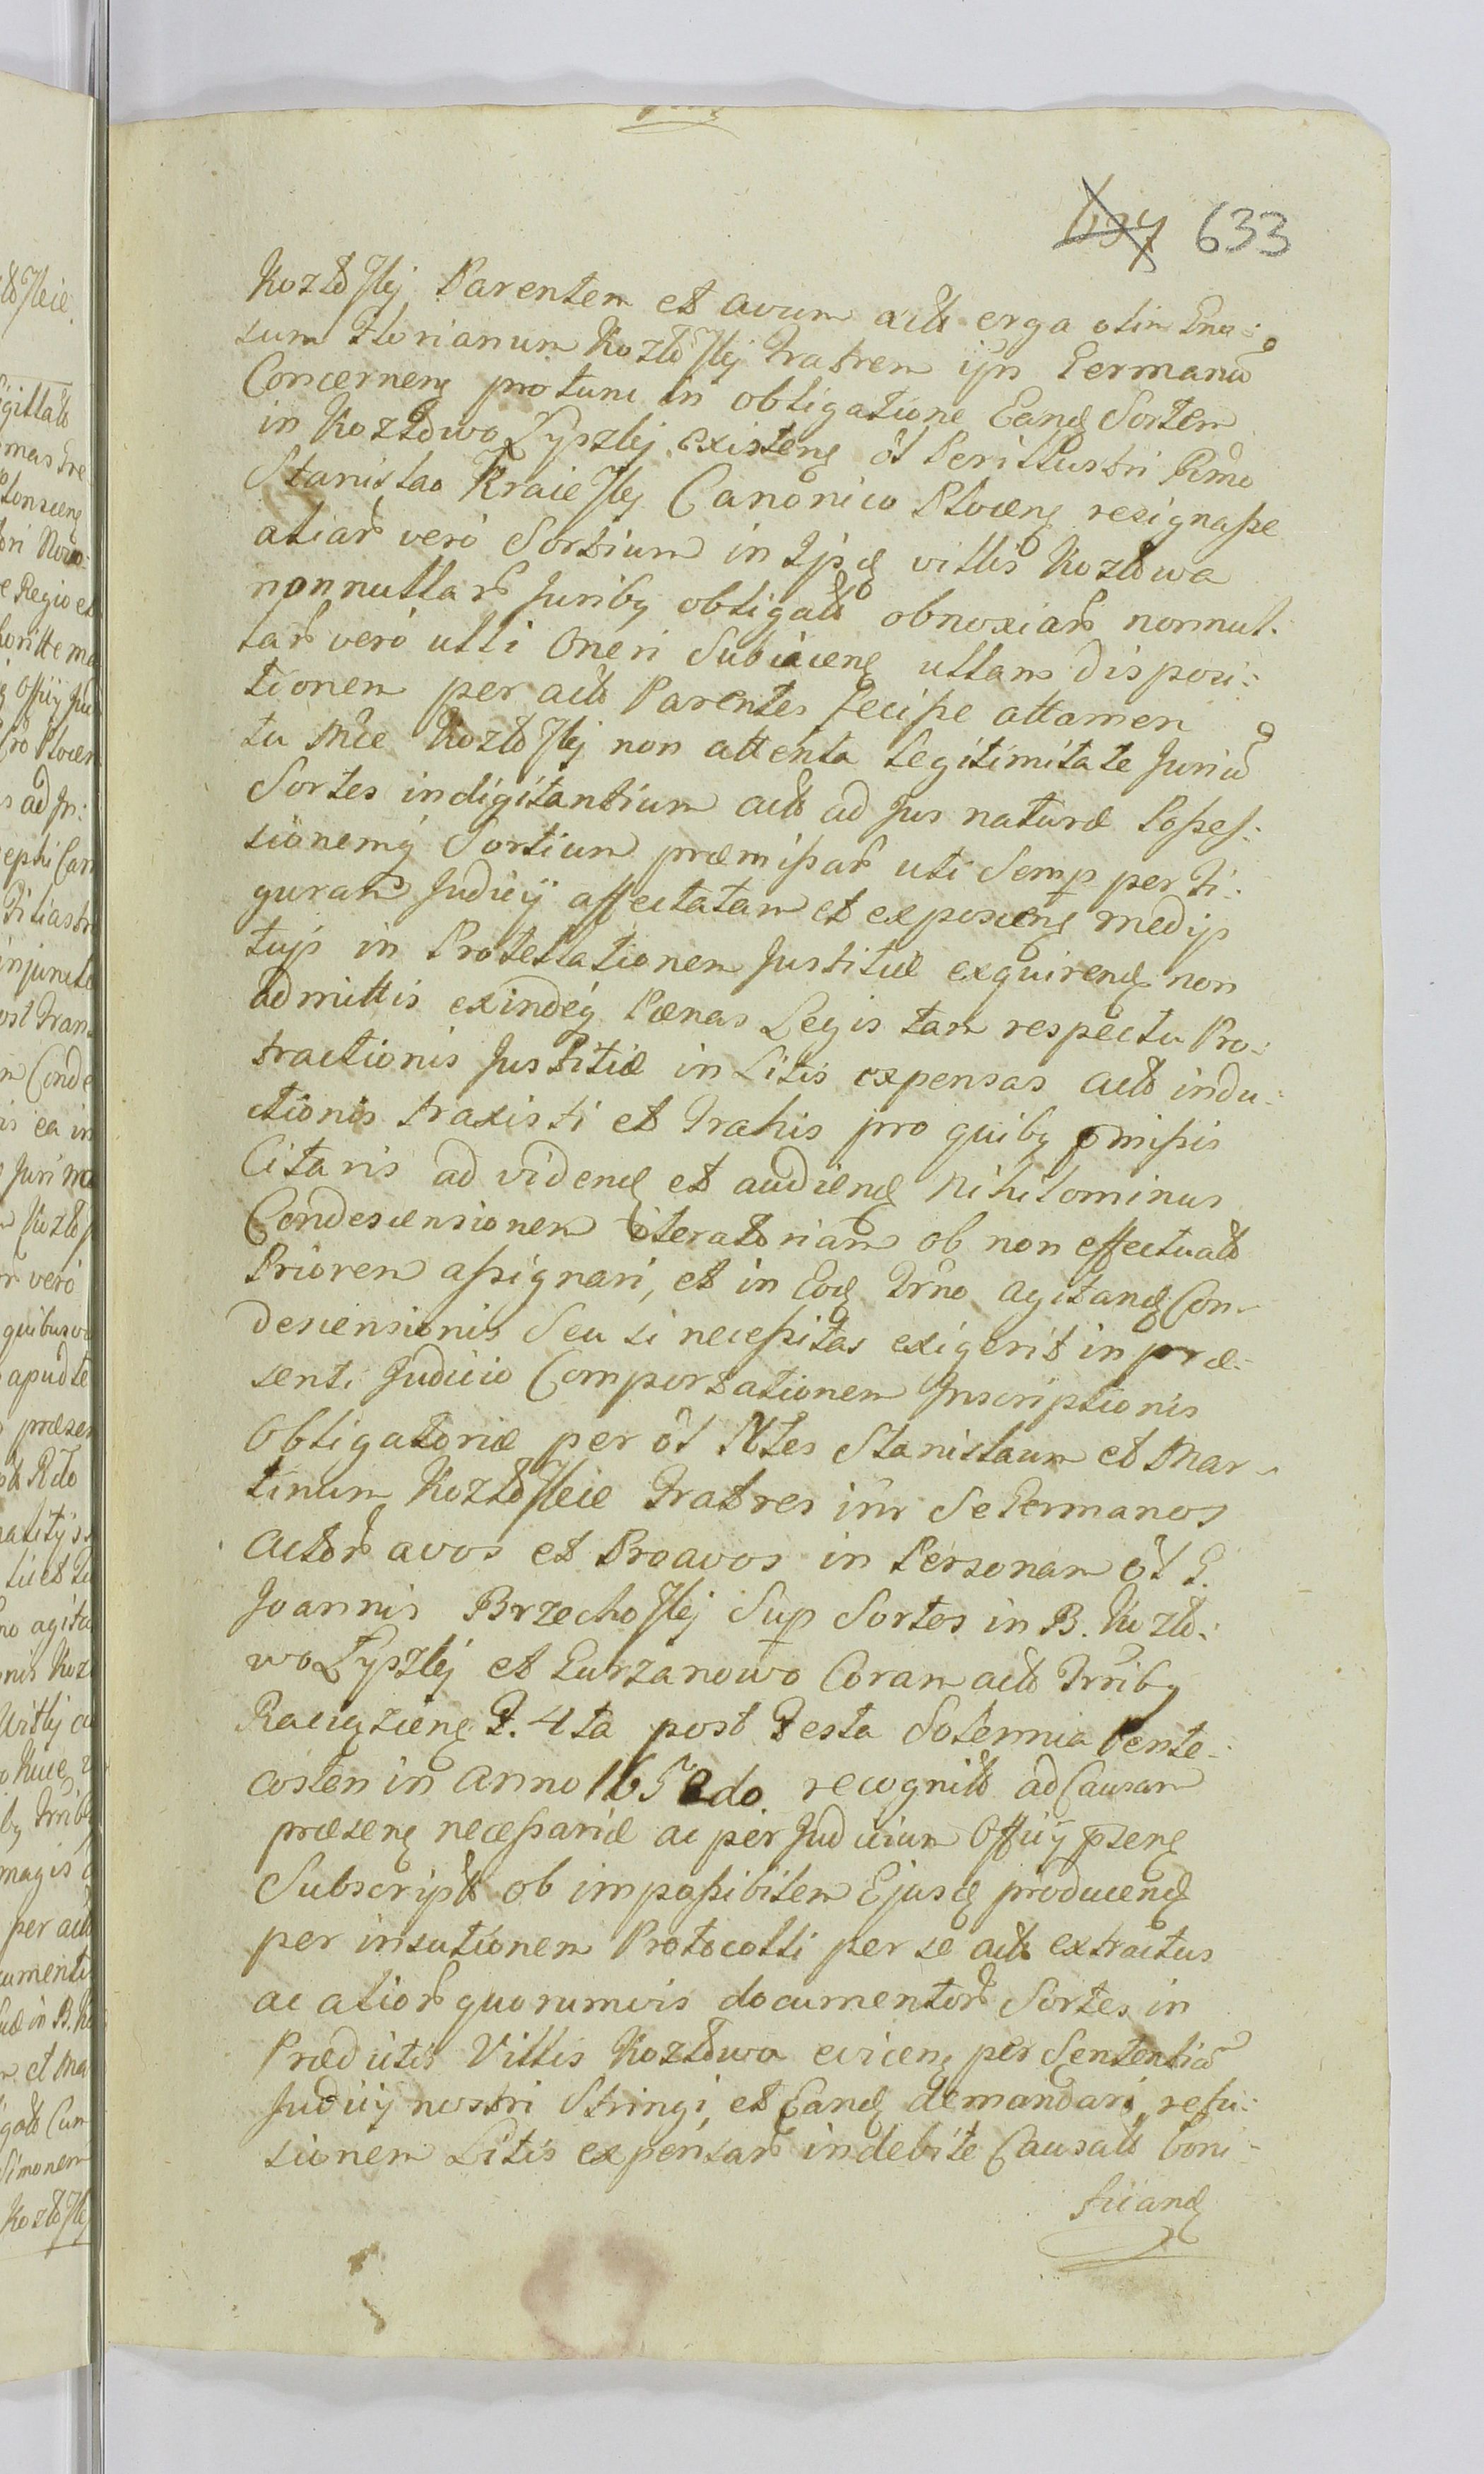 637 633
Kozłoskj Parentem et avum actt erga olim Gnu:
sum Florianum Kozłoskj Fratrem ipn Germanu
Concernen protunc in obligatione Eand Sortem
in Kozłowo Łyszkj existen ol Perillustri Rndo
Stanislao Kraieskj Canonico Plocen resignasse
aliar vero Sortium in Ipsq villis Kozłowa
nonnullar Juriby obligatt obnoxiar nonnul.
lar vero ulli Oneri Subiacen ullam disposi:
tionem per actt Parentes fecisse attamen
tu Mce Kozłoskj non attenta legitimitate Juriu
Sortes indigitantium actt ad Jus naturæ Posses:
sionemq Sortium præmissar uti Semp per Fi:
guram Judicij affectatam et exposcen medijs
tujs in Protellationem Justitiæ exquirend non
admittis exindeq Pænas Legis tam respectu Pro:
tractionis Justitiæ in Litis expensas actt indu:
ctionis traxisti et Trahis pro quiby pmissis
Citaris ad vidend et audiend nihilominus
Condescensionem iteratoriam ob non effectuatt
Priorem assignari, et in Eod Trno agitand Con-
descensionis Seu si necessitas exigerit in præ:
senti Judicio Comportationem Inscriptionis
Obligatoriæ per ol Nles Stanislaum et Mar-
tinum Kozłoskie Fratres inr Se Germanos
Actor avos et Proavos in Personam ol G.
Joannis Brzechoskj Sup Sortes in B. Kozło:
wo Łyszkj et Gurzanowo Coram actt Trriby
Raciązien F. 4ta post Festa Solennia Pente:
costen in Anno 1652do recognitt ad Causam
præsen necessariæ ac per Judicium Officij pzen
Subscriptt ob impossibilem Ejusd producend
per insutionem Protocolli per se actt extractus
ac alior quorumvis documentor Sortes in
Prædictis Villis Kozłowa evicen per Sententia
Judicij nostri Stringi, et Eand demandari, refu:
sionem Litis expensar indebite Causatt boni-
ficand